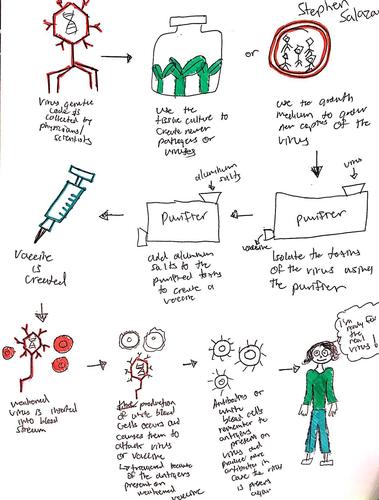 Stephen
Salazar
Virus genetic
code is
collected by
physicians/
scientists
use the
tissue culture to
create newer
pathogens or
viruses
or
use the growth
medium to grow
new copies of the
virus
virus
Purifier
vaccine
Isolate the toxins
of the virus using
the purifier
aluminum
salts
Purifier
add aluminum
salts to the
purified toxins
to create a
vaccine
Vaccine
is
created
weakened
virus is inserted
into blood
stream
production
of white blood
cells occurs and
causes them to
attack virus
or vaccine
because
of the antigens
present on
weakened
vaccine
Antibodies or
white
blood cells
remember to
antigens
present on
virus and
produce more
antibodies in
case the virus
is present again
i'm ready for
the
next
virus!